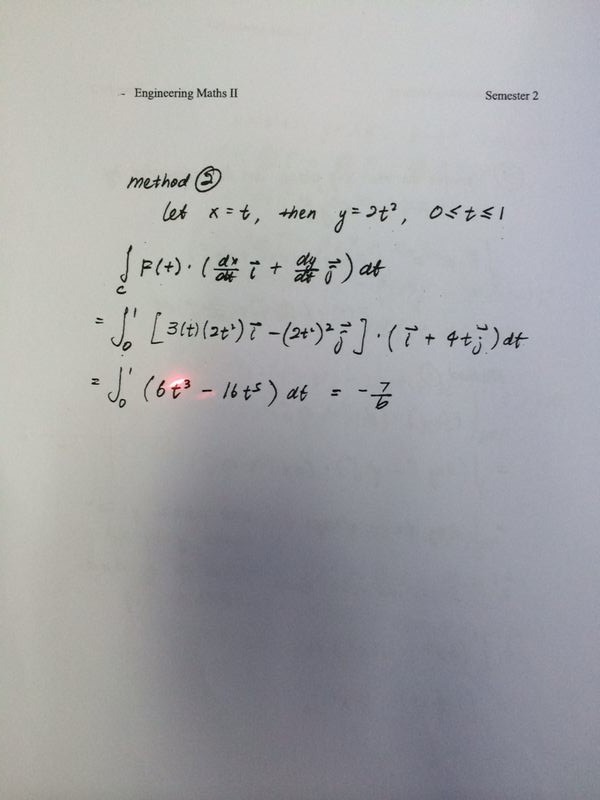 - Engineering Maths II Semester 2
method ②
let x = t, then y = 2t², 0 ≤ t ≤ 1
∫_C F(t) · (dx/dt i⃗ + dy/dt j⃗) dt
= ∫₀¹ [3(t)(2t²) i⃗ - (2t²)² j⃗] · (i⃗ + 4t j⃗) dt
= ∫₀¹ (6t³ - 16t⁵) dt = - 7/6